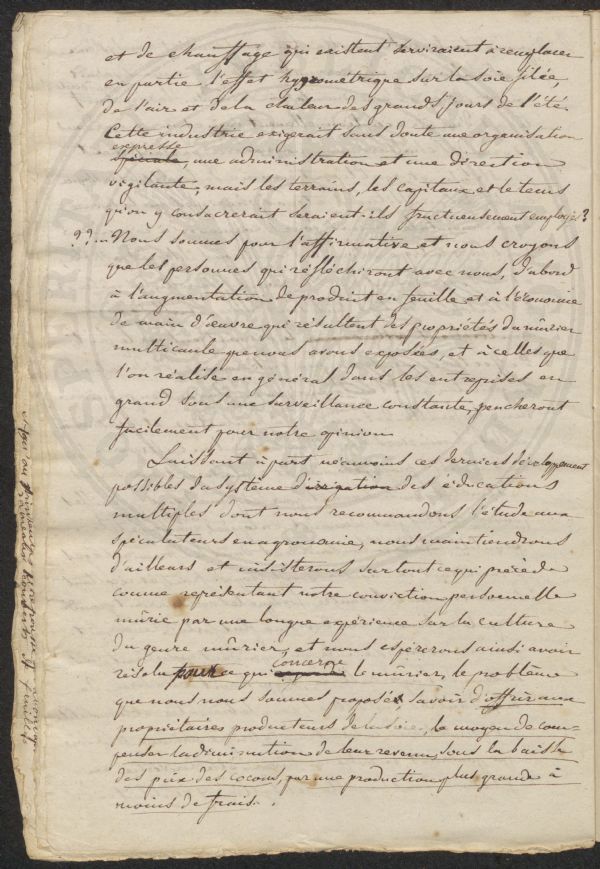 et de chauffage qui existent serviraient à remplacer
en partie l'effet hygrométrique sur la soie filée,
de l'air et de la chaleur des grands jours de l'été.
Cette industrie exigerait sans doute une organisation
expresse
spéciale, une administration et une direction
vigilante, mais les terrains, les capitaux et le tems
qu'on y consacrerait seraient-ils fructueusement employés?
??.. Nous sommes pour l'affirmative et nous croyons
que les personnes qui réfléchiront avec nous, d'abord
à l'augmentation de produit en feuille et à l'économie
de main d'œuvre qui résultent des propriétés du mûrier
multicaule que nous avons exposées, et à celles que
l'on réalise en général dans les entreprises en
grand sous une surveillance constante, pencheront
facilement pour notre opinion
Laissant à part néanmoins ces derniers développements
possibles du système d'irrigation des éducations
multiples dont nous recommandons l'étude aux
spéculateurs en agronomie, nous maintiendrons
d'ailleurs et insisterons sur tout ce qui précède
comme représentant notre conviction personnelle
mûrie par une longue expérience sur la culture
du genre mûrier, et nous espérons ainsi avoir
concerne
résolu pour ce qui le mûrier, le problème
que nous nous sommes proposés, savoir d'offrir aux
propriétaires producteurs de la soie, le moyen de com-
penser la diminution de leur revenu, sous la baisse
des prix des cocons, par une production plus grande à
moins de frais.